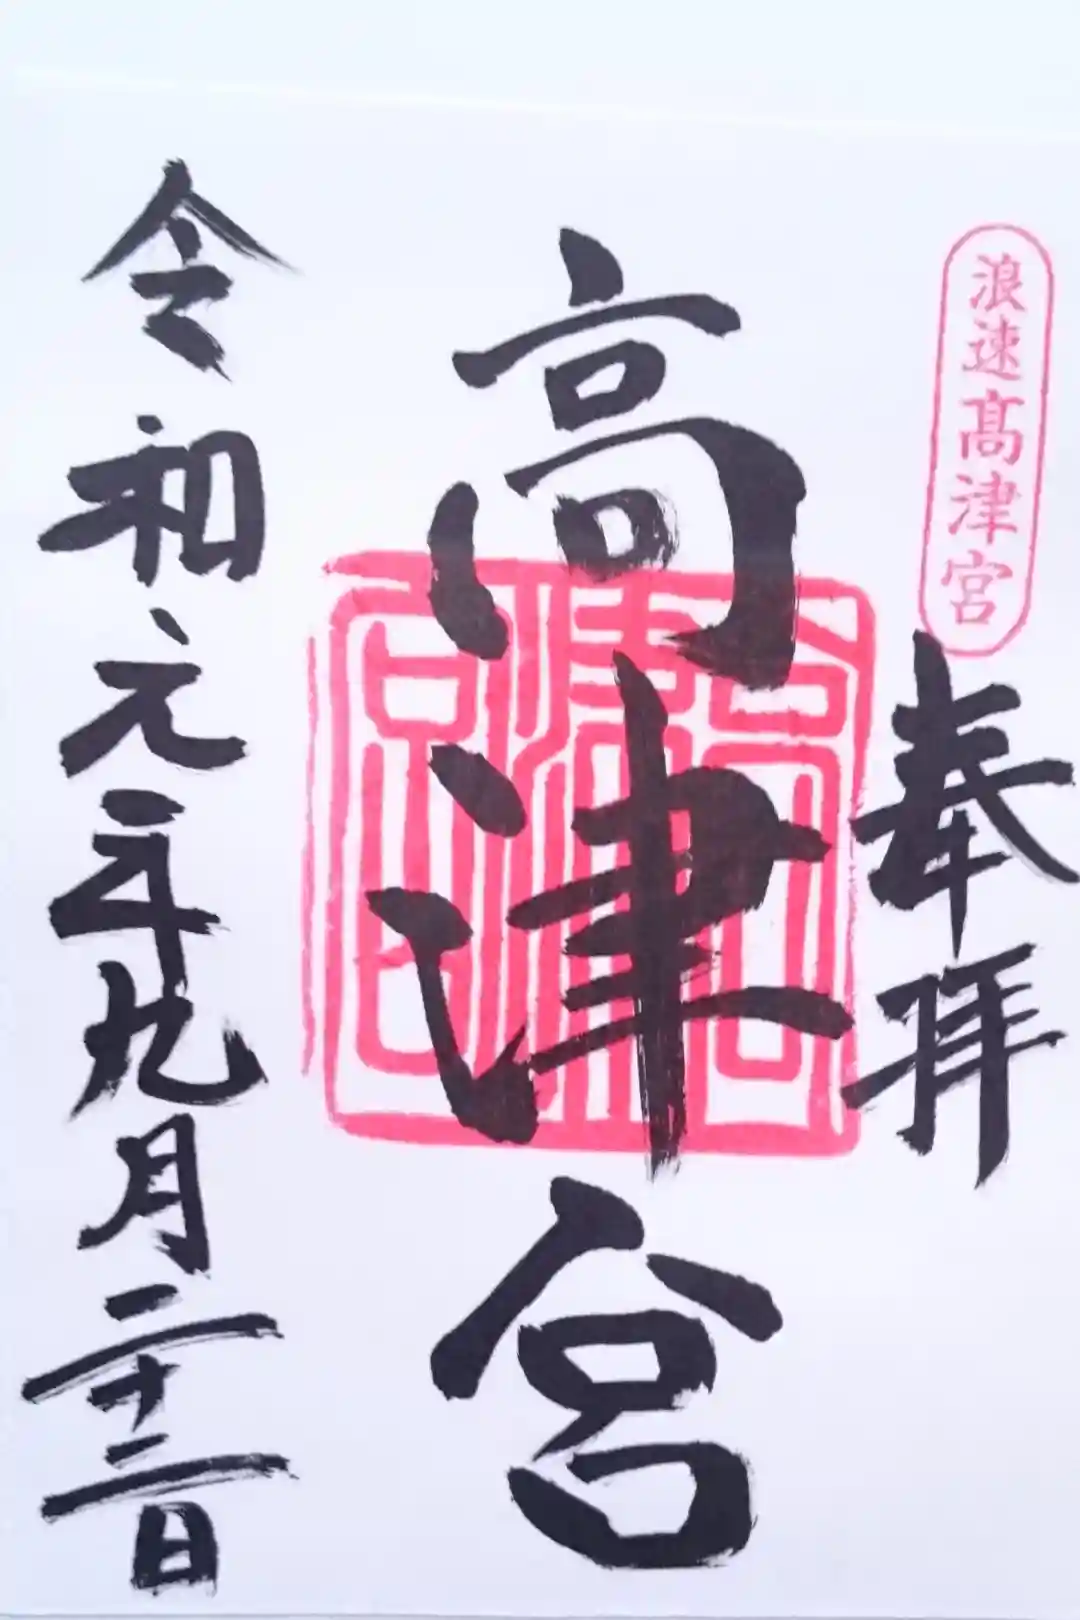 浪速髙津宮
奉拝
高津宮
高津宮
令和元年九月二十二日